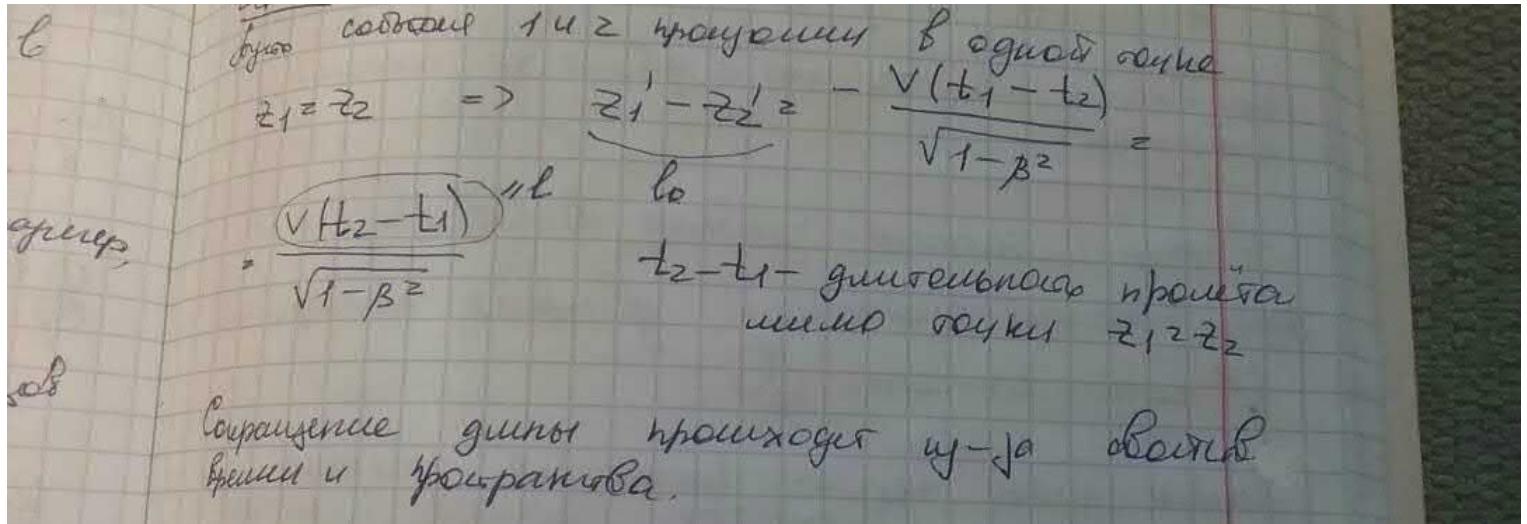 в
Пусть события 1 и 2 произошли в одной точке
z₁ = z₂ => z₁' - z₂' = - V(t₁ - t₂) / √(1-β²) =
= V(t₂ - t₁) / √(1-β²) "l l₀
t₂-t₁ - длительность пролёта
мимо точки z₁ = z₂
Сокращение длины происходит из-за свойств
времени и пространства.